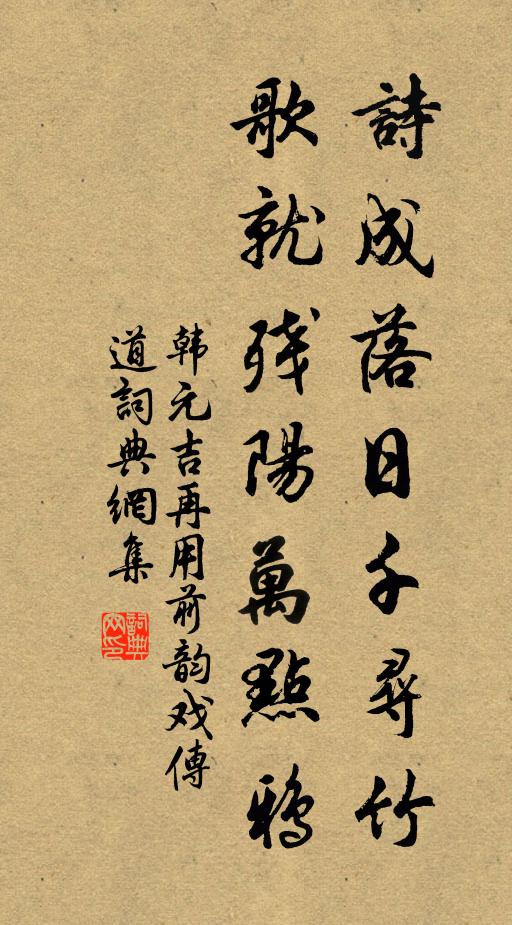 詩成落日千尋竹
歌就残陽萬點鴉
韩元吉再用前韵戏傳
道詞典網集
詞典網印